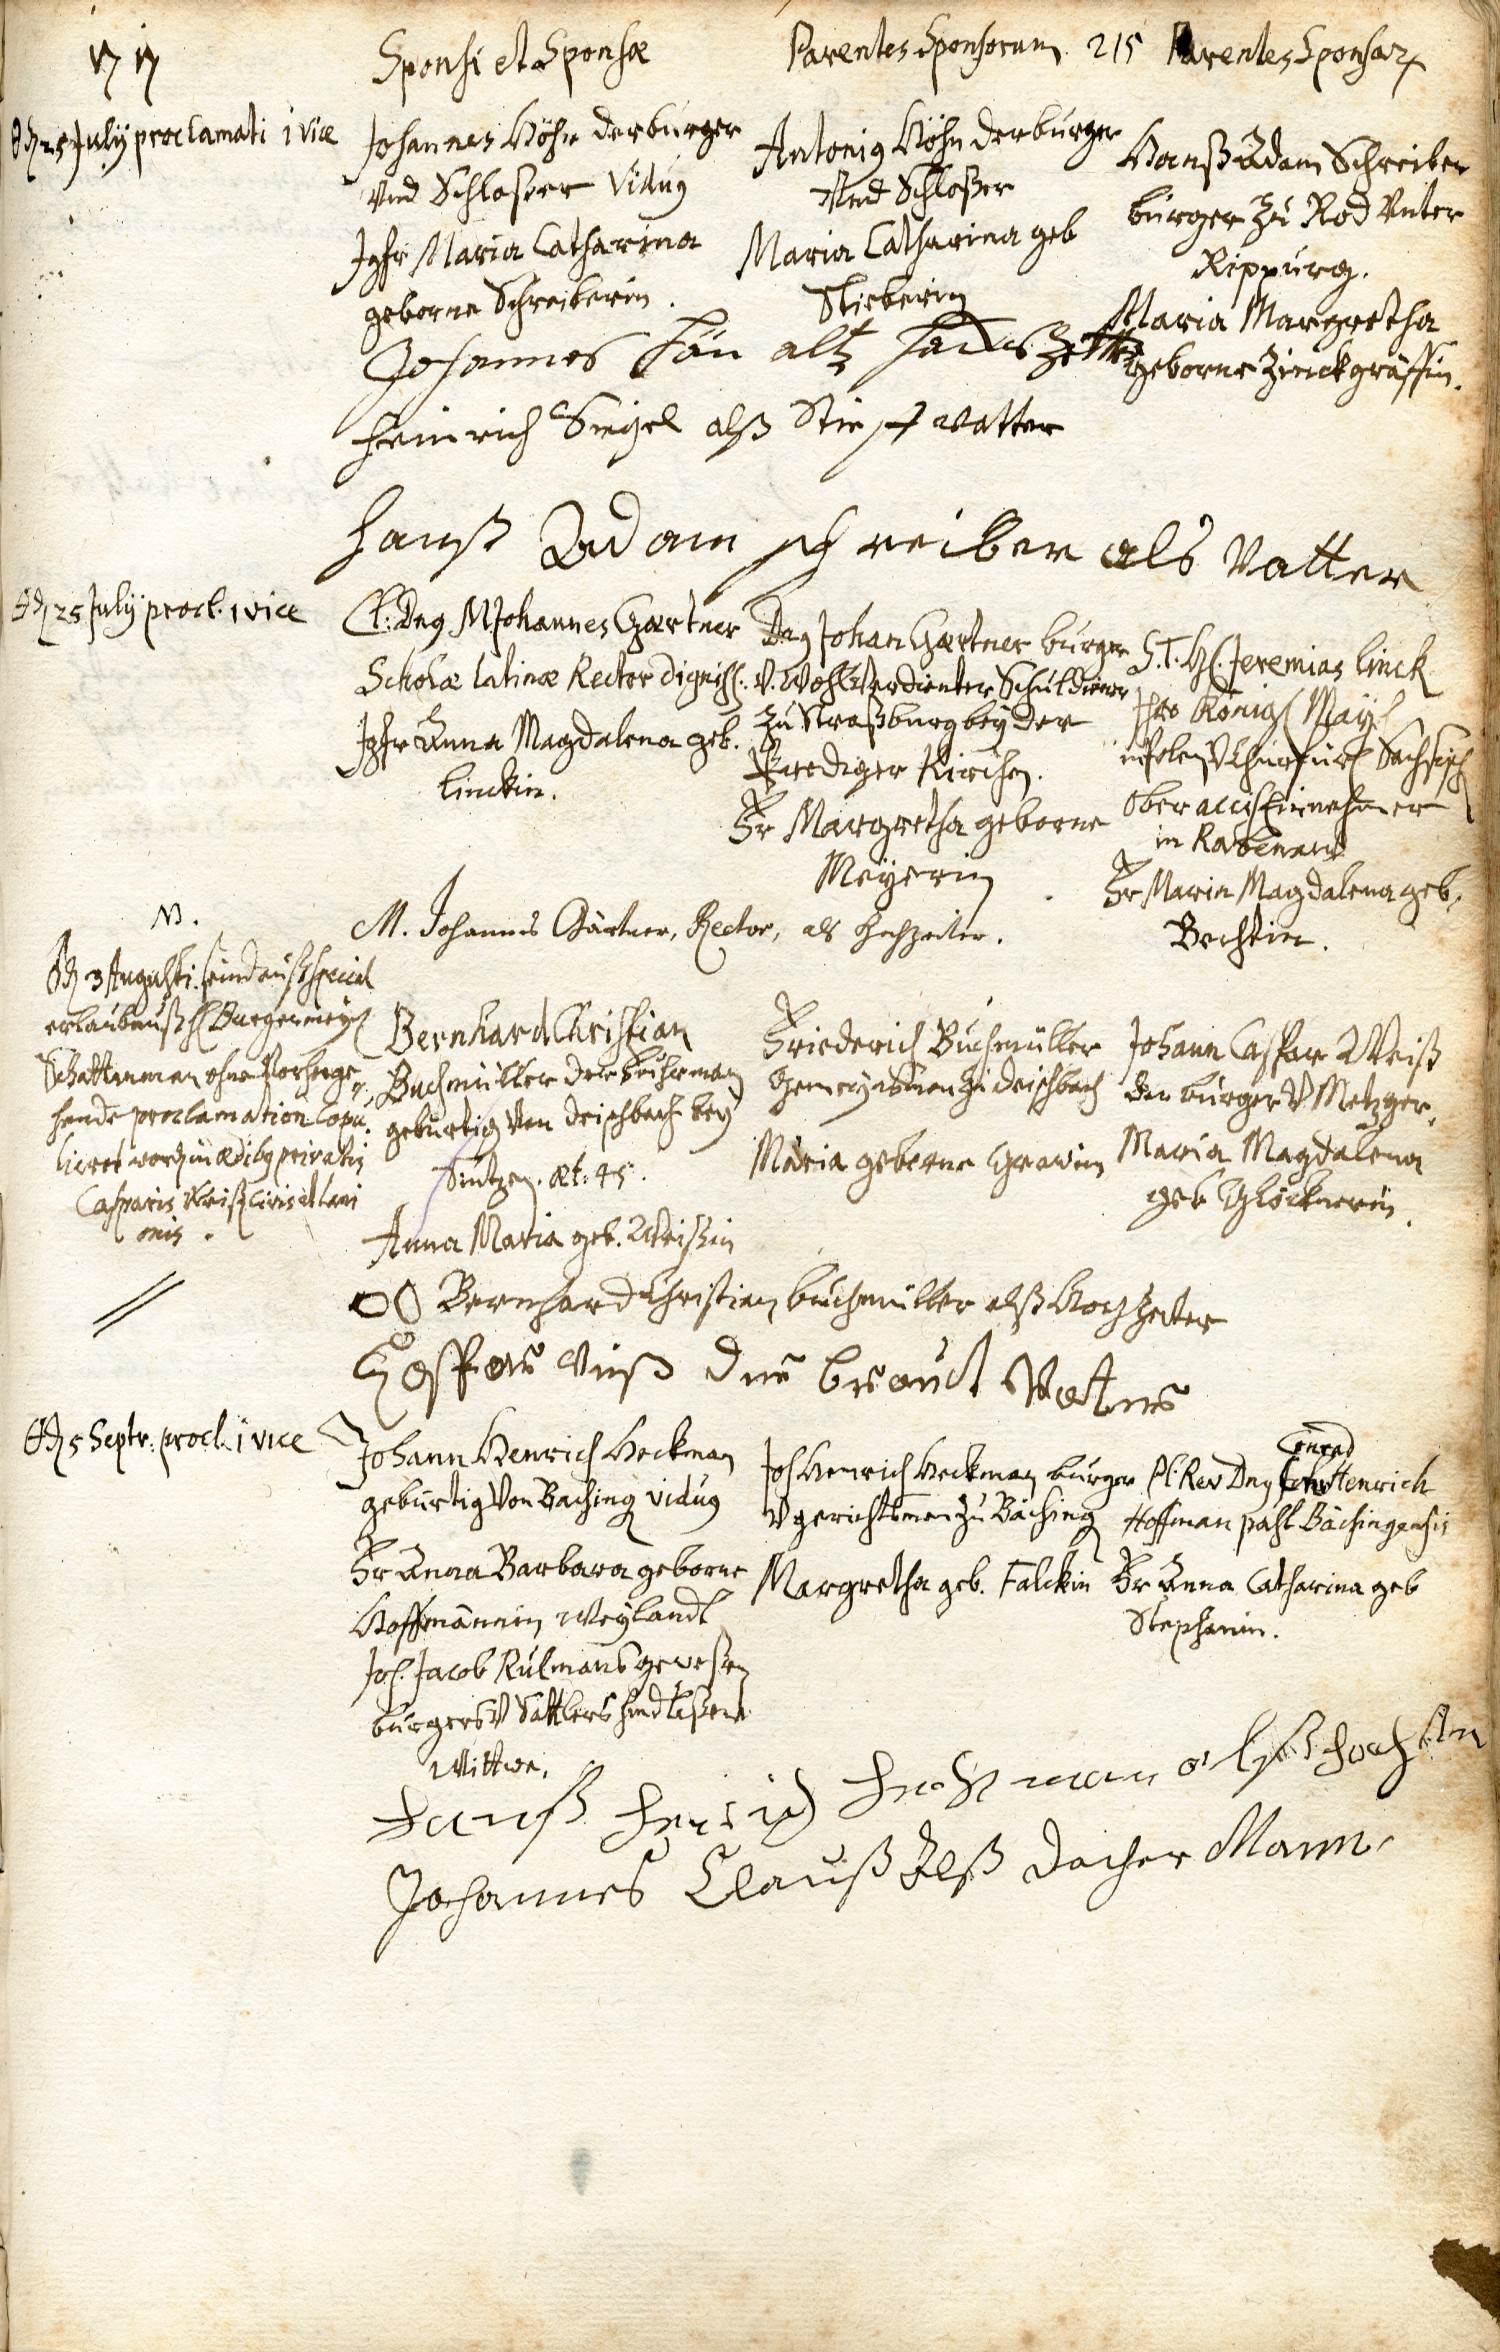 1717
Sponsi et Sponsæ
Parentes Sponsorum
215
Parentes Sponsar
25 July proclamati 1 vice
Johannes Höhn der burger
Vnd Schloßer Vidu9
Jgfr Maria Catharina
geborne Schreiberin.
Antoni9 Höhn der burger
Vnd Schloßer
Maria Catharina geb
Stieberin
Hanß Adam Schreiber
burger Zu Rod Vnter
Rippurg.
Maria Margretha
geborne Zinckgräffin.
Johannes Hön alß
Heinrich Siegel alß Stieff vatter
Hanß Adam schreiber als Vatter
25 July procl. 1 vice
Cl. Dn9 M Johannes Gærtner
Scholæ latinæ Rector digniss.
Jgfr Anna Magdalena geb.
linckin.
Dn9 Johan Gærtner burger
V. Wohlverdienter Schuldiener
Zu Straßburg bey der
Prediger Kirchen.
Fr Margretha geborne
Meyerin
S. T. H. Jeremias linck
Ihro Königl May
in Polen V Churfürl Sächsisch
Ober accis Einnehmer
in
Fr Maria Magdalena geb.
Bechtin.
M. Johannes Gärtner, Rector, als Hochzeiter.
NB.
3 Augusti. seind auß special
erlaubnuß H Burgermeyst
Schattenman ohne Vorherge
hende proclamation Copu
liret word in ædib9 privatis
Casparis Weiß Civis et lani
onis.
Bernhard Christian
Buchmüller der fuhrman
gebürtig Von Deischbach bey
Sintzen. æt: 45.
Anna Maria geb. Weißin
Friederich Buchmüller
Gemeinsman Zu Deischbach
Maria geborne Grawin
Johann Caspar Weiß
der burger V Metzger.
Maria Magdalena
geb Glöcknerin.
Bernhard Christian buchmüller alß Hochzeiter
Casper Weiß der braudt Vatter
5 Septr. procl. 1 vice
Johann Henrich Heckman
gebürtig Von Baching vidu9
Fr Anna Barbara geborne
Hoffmännin Weylandt
Joh. Jacob Rülmans gewesen
burgers V Sattlers hindlaßene
Wittwe.
Joh Henrich Heckman burger
V gerichtsman Zu Bäching
Margretha geb. Falckin
Conrad
Pl. Rev Dn9 Henrich
Hoffman past Bächingensis
Fr Anna Catharina geb
Stephanin.
Hanß Henrich Heckman alß hochzeiter
Johannes Clauß Alß docher Mann.